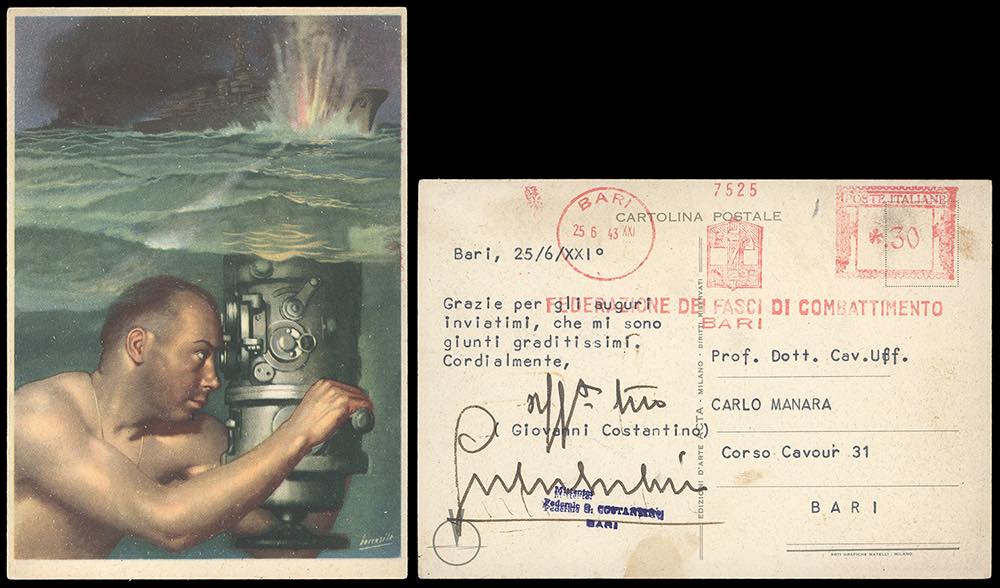 boccasile
7525
BARI
25 6 43 XXI
CARTOLINA POSTALE
POSTE ITALIANE
30
Bari, 25/6/XXI°
FEDERAZIONE DEI FASCI DI COMBATTIMENTO
BARI
Grazie per gli auguri
inviatimi, che mi sono
giunti graditissimi.
Cordialmente,
( Giovanni Costantino)
Federale G. COSTANTINO
BARI
EDIZIONI D'ARTE ACTA - MILANO - DIRITTI RISERVATI
Prof. Dott. Cav.Uff.
CARLO MANARA
Corso Cavour 31
BARI
ARTI GRAFICHE MATELLI - MILANO